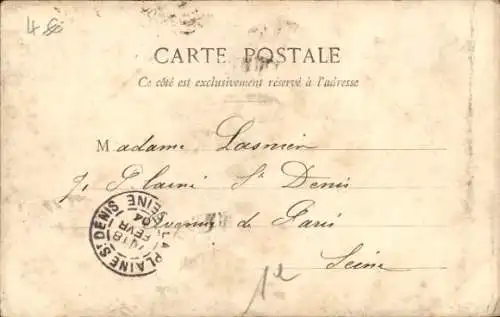 CARTE POSTALE
Ce côté est exclusivement réservé à l'adresse
Madame Lasnier
Plaine St Denis
Avenue de Paris
Seine
LA PLAINE ST DENIS SEINE
18
FEVR
04